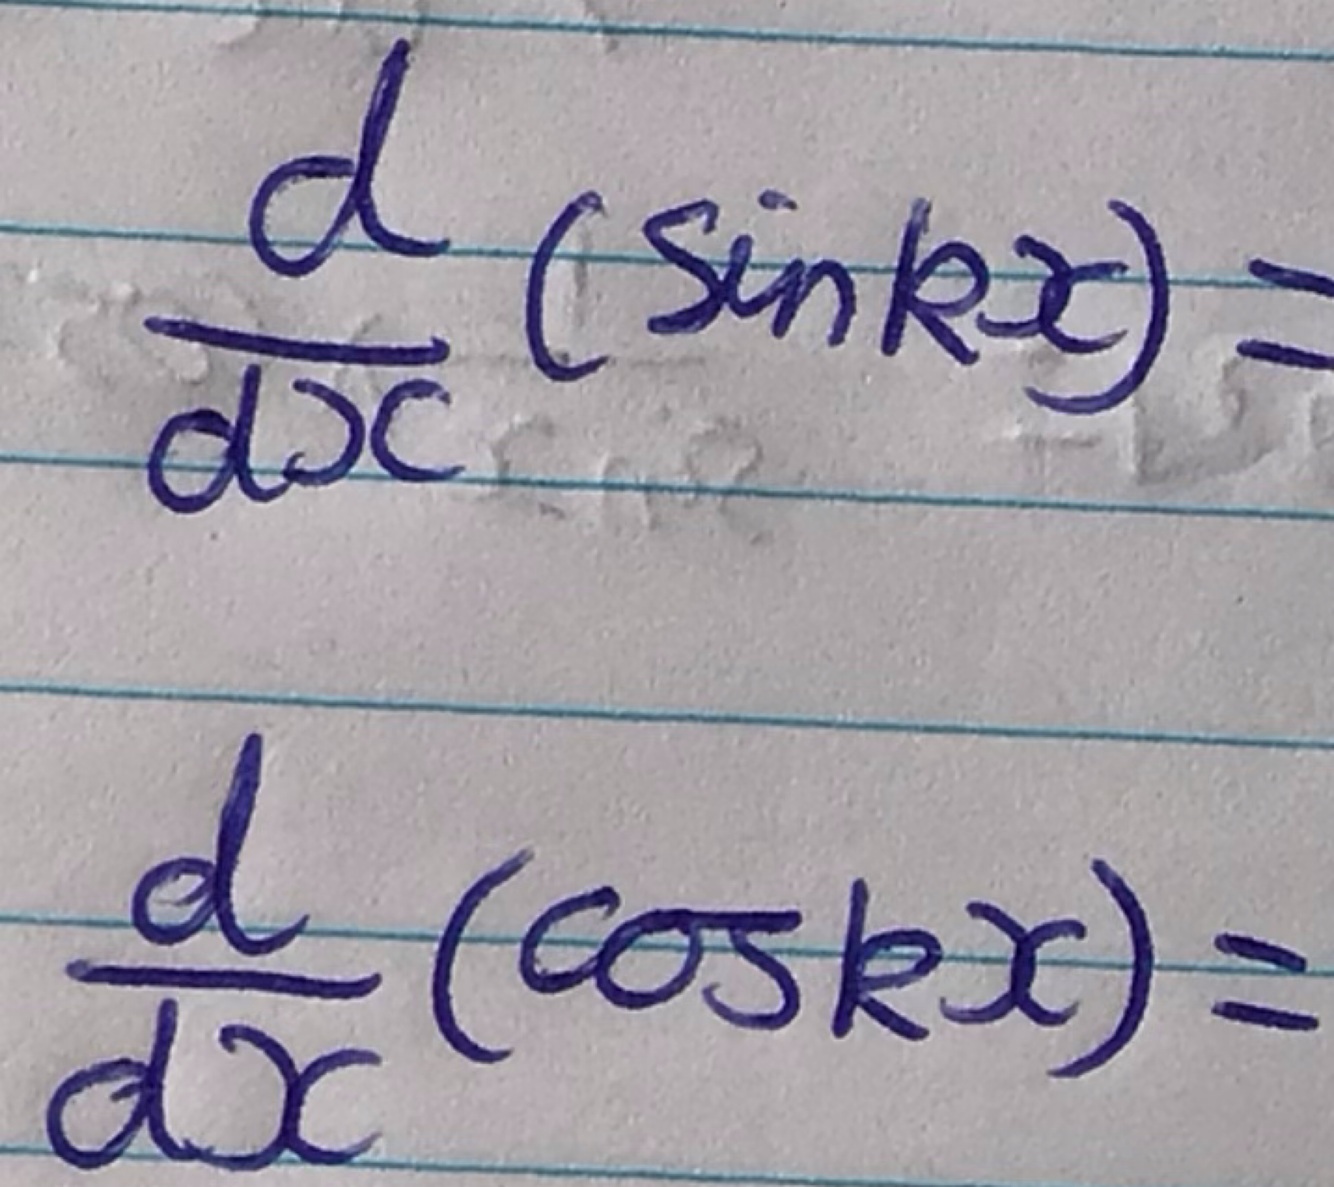 d/dx (sinkx) =
d/dx (coskx) =